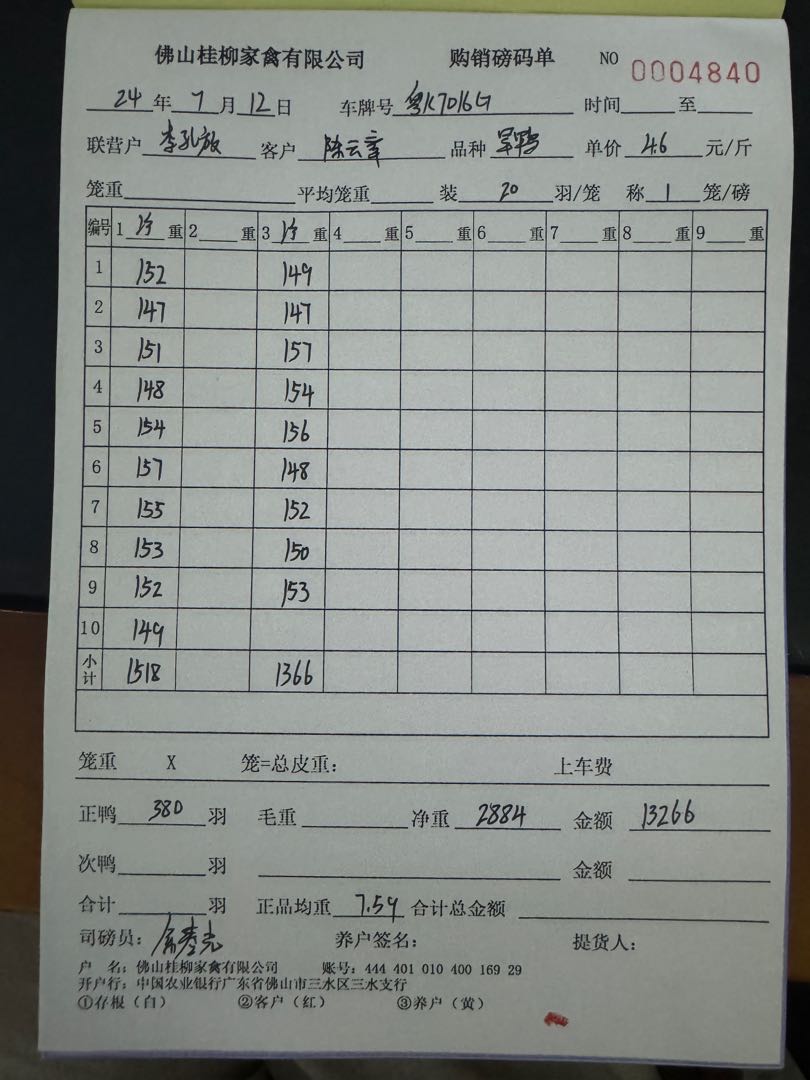 佛山桂柳家禽有限公司 购销磅码单 NO 0004840
24 年 7 月 12 日 车牌号 粤K7016G 时间 至
联营户 李孔放 客户 陈云章 品种 旱鸭 单价 4.6 元/斤
笼重 平均笼重 装 20 羽/笼 称 1 笼/磅
编号 1 净 重 2 重 3 净 重 4 重 5 重 6 重 7 重 8 重 9 重
1 152 149
2 147 147
3 151 157
4 148 154
5 154 156
6 157 148
7 155 152
8 153 150
9 152 153
10 149
小计 1518 1366
笼重 X 笼=总皮重: 上车费
正鸭 380 羽 毛重 净重 2884 金额 13266
次鸭 羽 金额
合计 羽 正品均重 7.59 合计总金额
司磅员: 养户签名: 提货人:
户 名: 佛山桂柳家禽有限公司 账号: 444 401 010 400 169 29
开户行: 中国农业银行广东省佛山市三水区三水支行
①存根(白) ②客户(红) ③养户(黄)